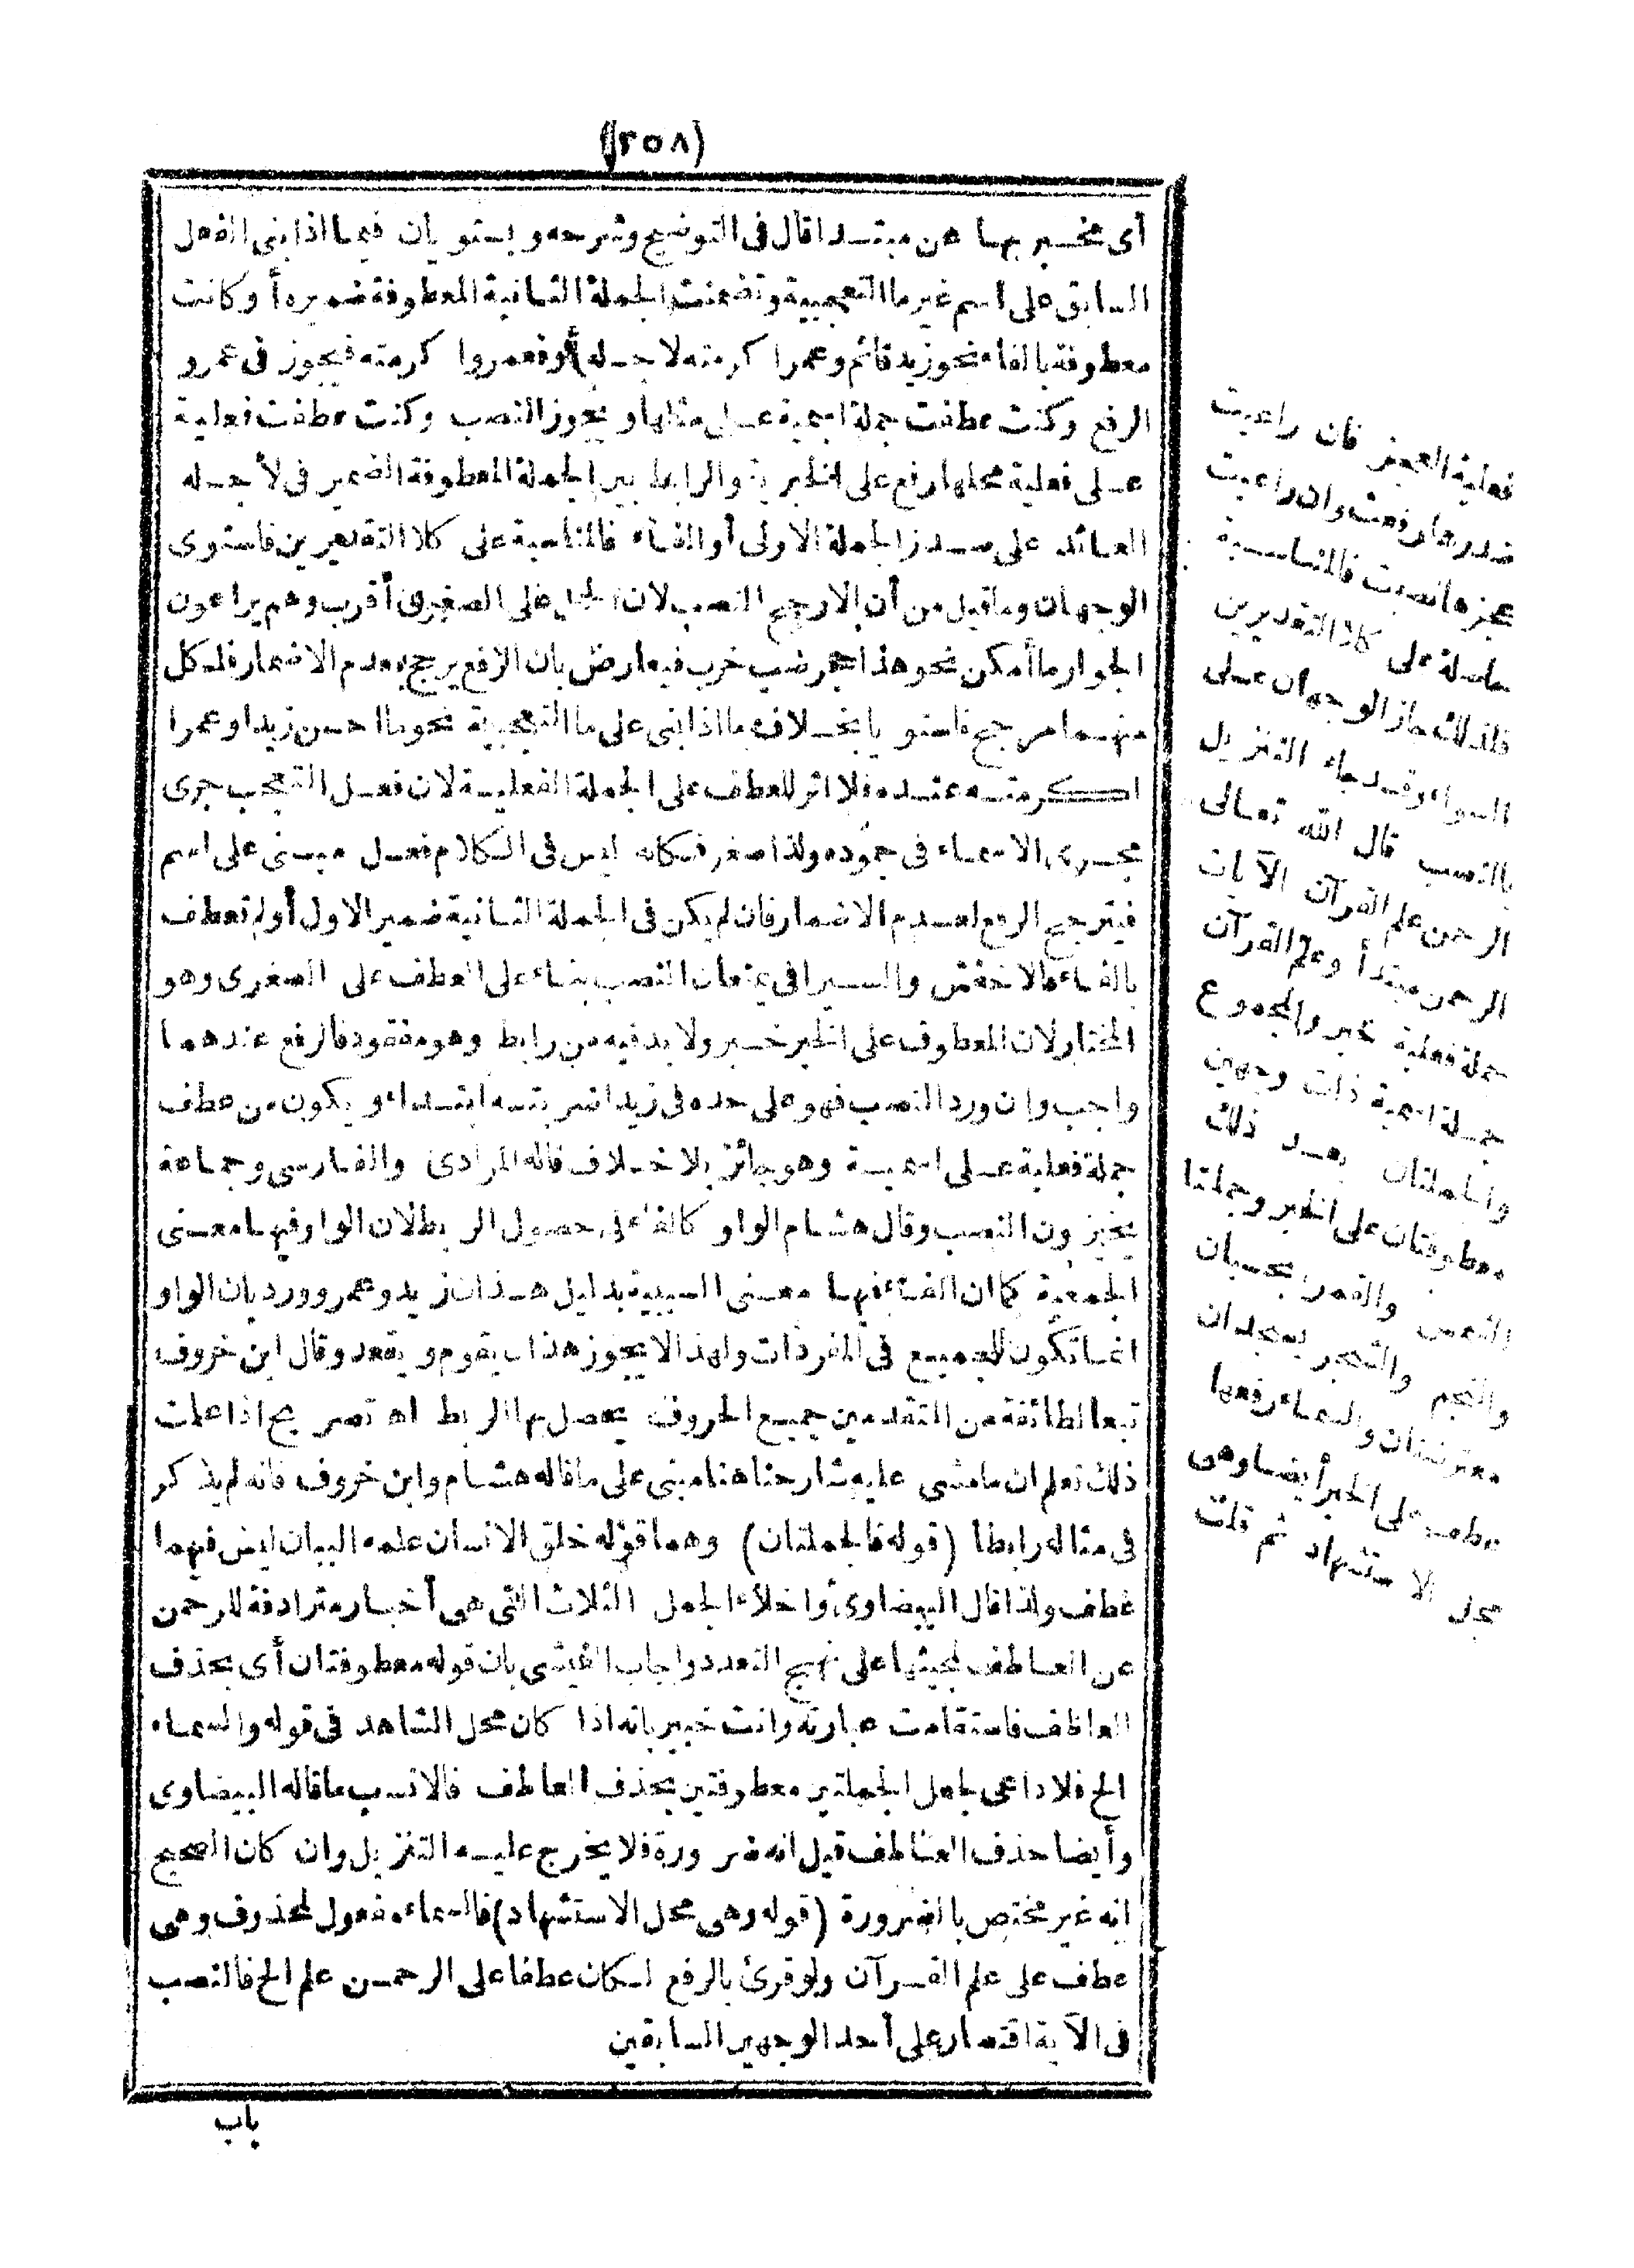 (٢٥٨)
أى مخبر بها عن مبتدا قال فى التوضيح وشرحه ويستويان فيما اذا بنى الفعل
السابق على اسم غير ما التعجبية وتضمنت الجملة الثانية المعطوفة ضميره أو كانت
معطوفة بالفاء نحو زيد قائم وعمرا كرمته لاجله أو فعمروا كرمته فيجوز فى عمرو
الرفع وكنت عطفت جملة اسمية على مثلها ويجوز النصب وكنت عطفت فعلية
على فعلية محلها رفع على الخبرية والرابط بين الجملة المعطوفة الضمير فى لأجله
العائد على مبتدا الجملة الاولى أو الفاء فالمناسبة على كلا التقديرين فاستوى
الوجهان وما قيل من أن الارجح النصب لان الحمل على الصغرى أقرب وهم يراعون
الجوار ما أمكن نحو هذا حجر ضب خرب فيعارض بان الرفع يرجح بعدم الاضمار فلكل
منهما مرجح فاستويا بخلاف ما اذا بنى على ما التعجبية نحو ما احسن زيدا وعمرا
اكرمته عنده فلا اثر للعطف على الجملة الفعلية لان فعل التعجب جرى
مجرى الاسماء فى جموده ولذا صغر فكانه ليس فى الكلام فعل مبنى على اسم
فيترجح الرفع لعدم الاضمار فان لم يكن فى الجملة الثانية ضمير الاول أولم تعطف
بالفاء فالاخفش والسيرافى يمنعان النصب بناء على العطف على الصغرى وهو
المختار لان المعطوف على الخبر خبر ولا بد فيه من رابط وهو مفقود فالرفع عندهما
واجب وان ورد النصب فهو على حده فى زيدا ضربته ابتداء ويكون من عطف
جملة فعلية على اسمية وهو جائز بلا خلاف قاله المرادى والفارسى وجماعة
يجيزون النصب وقال هشام الواو كالفاء فى حصول الربط لان الواو فيها معنى
الجمعية كما ان الفاء فيها معنى السببية بدليل هذان زيد وعمرو ورد بان الواو
انما تكون للجميع فى المفردات ولهذا لا يجوز هذان يقوم ويقعد وقال ابن خروف
تبعا لطائفة من المتقدمين جميع الحروف يحصل بها الربط اه تصريح اذا علمت
ذلك تعلم ان ما مشى عليه شارحنا هنا مبنى على ما قاله هشام وابن خروف فانه لم يذكر
فى مثاله رابطا (قوله فالجملتان) وهما قوله خلق الانسان علمه البيان ليس فيهما
عطف ولذا قال البيضاوى واخلاء الجمل الثلاث التى هى أخبار مترادفة للرحمن
عن العاطف لمجيئها على نهج التعدد واجاب الفيشى بان قوله معطوفتان أى بحذف
العاطف فاستقامت عبارته وانت خبير بانه اذا كان محل الشاهد فى قوله والسماء
الخ فلا داعى لجعل الجملتين معطوفتين بحذف العاطف فالانسب ما قاله البيضاوى
وأيضا حذف العاطف قيل انه ضرورة فلا يخرج عليه التنزيل وان كان الصحيح
انه غير مختص بالضرورة (قوله وهى محل الاستشهاد) فالسماء مفعول لمحذوف وهى
عطف على علم القرآن ولو قرئ بالرفع لكان عطفا على الرحمن علم الخ فالنصب
فى الآية اقتصار على أحد الوجهين السابقين
باب
فعلية العجز فان راعيت
صدرها رفعت وان راعيت
عجزها نصبت فالمناسبة
حاصلة على كلا التقديرين
فلذلك جاز الوجهان على
السواء وقد جاء التنزيل
بالنصب قال الله تعالى
الرحمن علم القرآن الآيات
الرحمن مبتدأ وعلم القرآن
جملة فعلية خبر والمجموع
جملة اسمية ذات وجهين
والجملتان بعد ذلك
معطوفتان على الخبر وجملتا
الشمس والقمر بحسبان
والنجم والشجر يسجدان
معترضتان والسماء رفعها
عطف على الخبر أيضا وهى
محل الاستشهاد ثم قلت